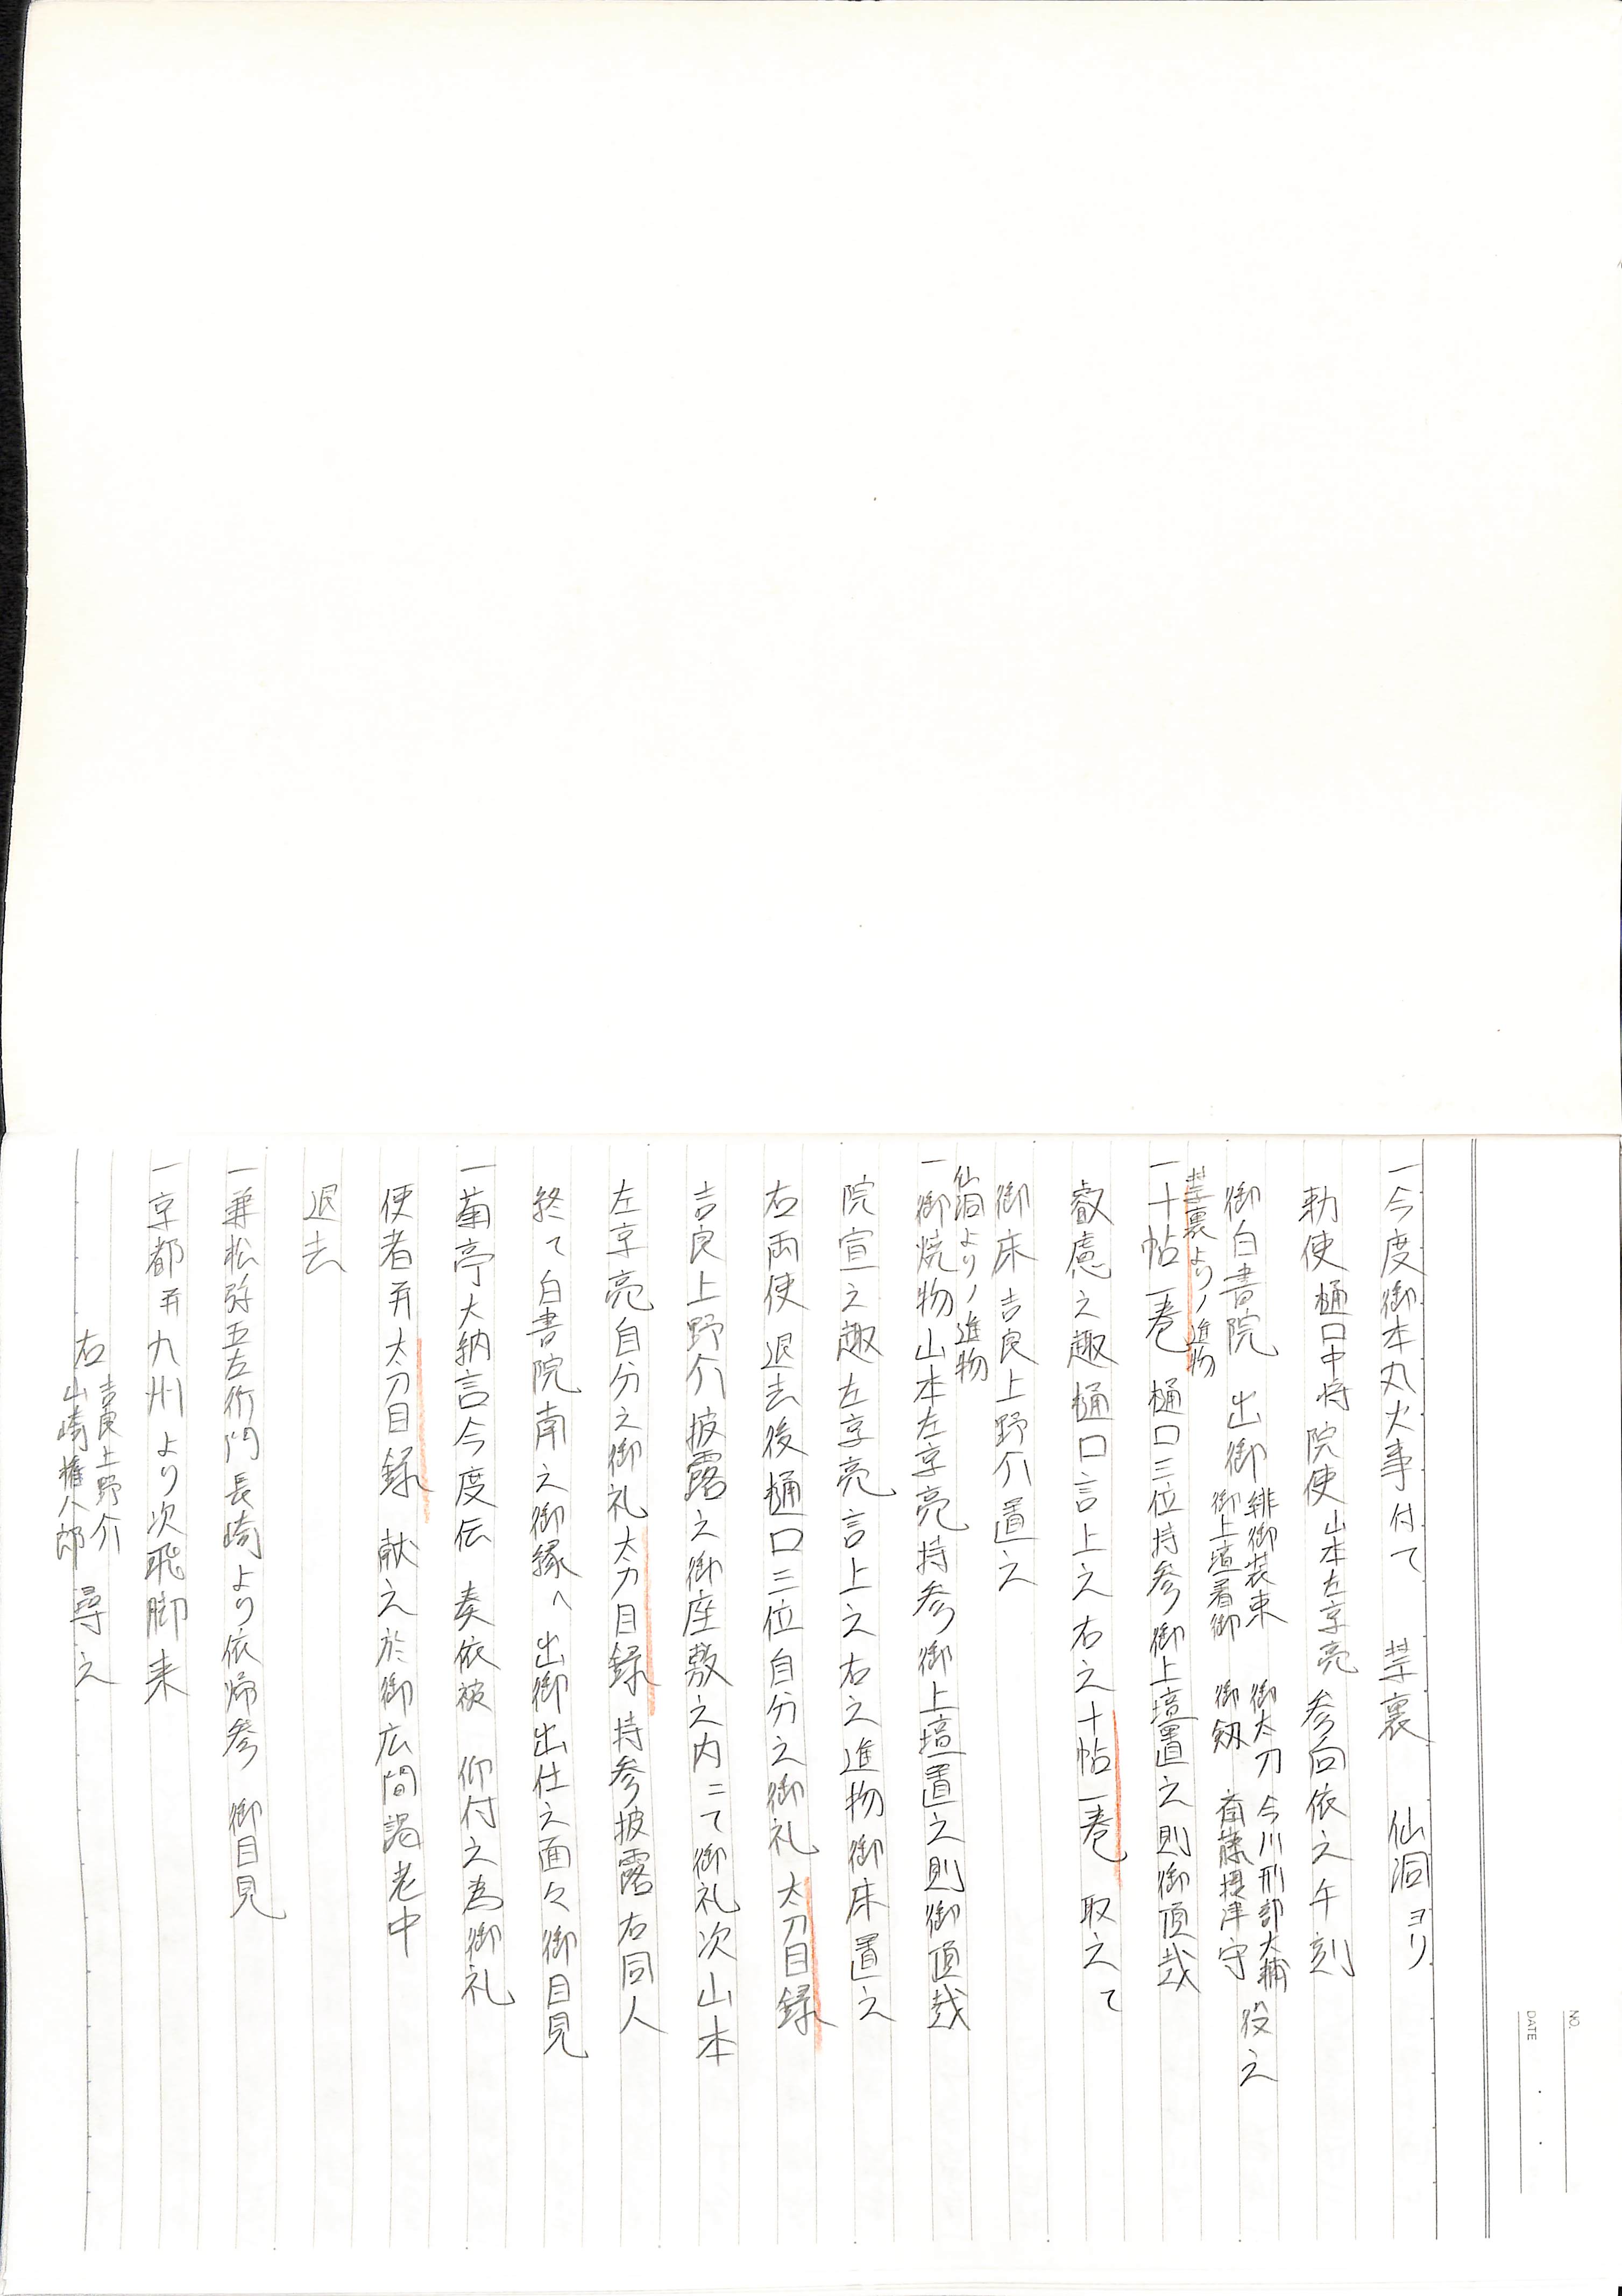 NO.
DATE
一今度御本丸火事付て 禁裏 仙洞ヨリ
勅使樋口中将 院使山本左京亮 参向依之午刻
御白書院 出御 緋御装束 御太刀 今川刑部大輔 役之
御上壇着御 御剱 斎藤摂津守
禁裏よりノ進物
一十帖一巻 樋口三位持参御上壇置之則御頂戴
叡慮之趣樋口言上之右之十帖一巻 取之て
御床吉良上野介置之
仙洞よりノ進物
一御焼物山本左京亮持参御上壇置之則御頂戴
院宣之趣左京亮言上之右之進物御床置之
右両使退去後樋口三位自分之御礼太刀目録
吉良上野介披露之御座敷之内ニて御礼次山本
左京亮自分之御礼太刀目録持参披露右同人
終て白書院南之御縁へ 出御出仕之面々御目見
一菊亭大納言今度伝 奏依被 仰付之為御礼
使者并太刀目録 献之於御広間謁老中
退去
一兼松弥五左衛門長崎より依帰参 御目見
一京都并九州より次飛脚来
吉良上野介
右 山崎権八郎 尋之